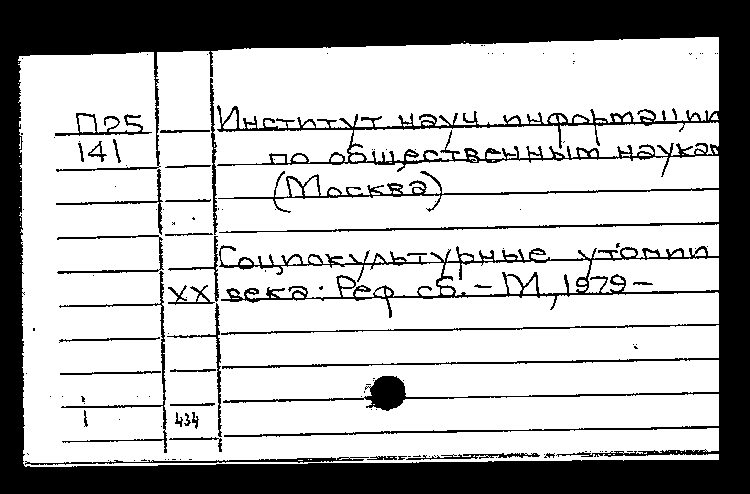 П25 Институт науч. информации
141 по общественным наукам
(Москва)
Социокультурные утопии
XX века: Реф. сб. - М., 1979 -
1 434